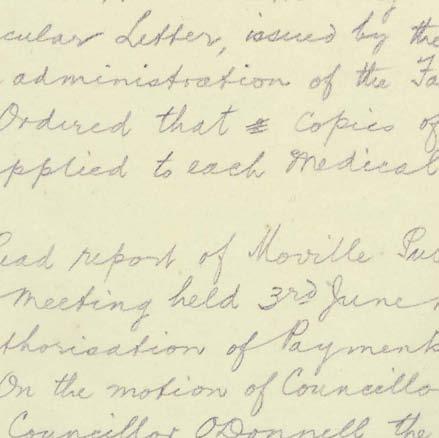 cular Letter, issued by the
administration of the Fa
Ordered that copies of
pplied to each Medical
ead report of Moville Pu
meeting held 3rd June
thorisation of Payment
On the motion of Councillo
Councillor O'Donnell the